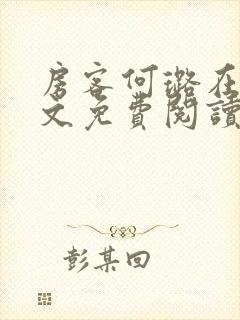 房客何璐在
文免費閱讀
彭某回